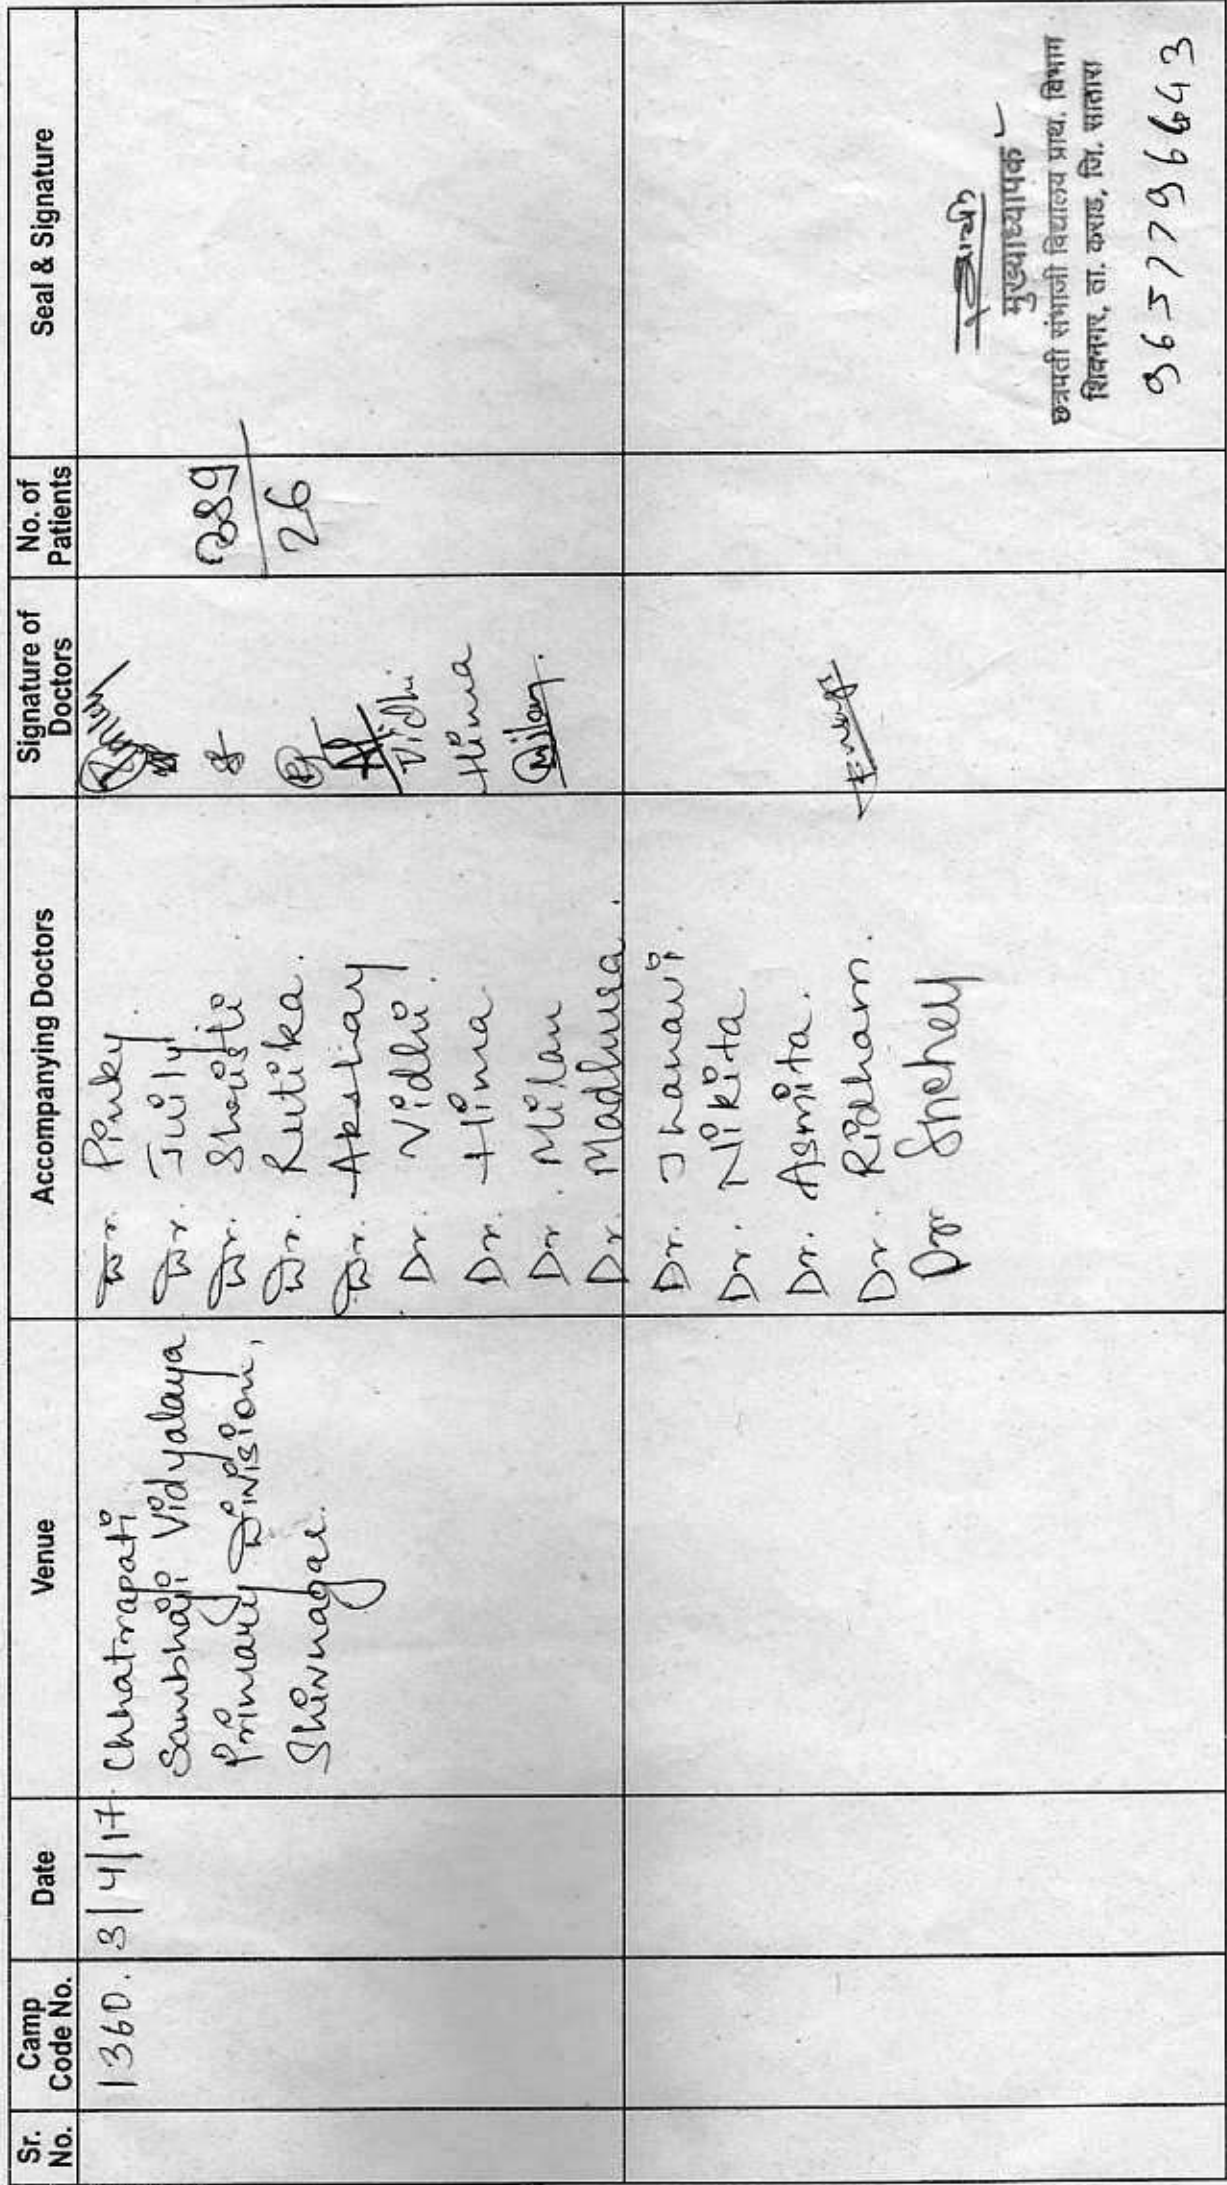 Sr. No.
Camp Code No.
Date
Venue
Accompanying Doctors
Signature of Doctors
No. of Patients
Seal & Signature
1360.
3/4/17.
Chhatrapati
Sambhaji Vidyalaya
Primary Division,
Shivnagar.
Dr. Pinky.
Dr. Juily.
Dr. Shristi
Dr. Rutika.
Dr. Akshay
Dr. Vidhi.
Dr. Hima
Dr. Milan
Dr. Madhura.
Vidhi
Hima
Milan.
389
26
Dr. Jhanavi.
Dr. Nikita
Dr. Asmita.
Dr. Ridham.
Dr
मुख्याध्यापक
छत्रपती संभाजी विद्यालय प्राथ. विभाग
शिवनगर, ता. कराड, जि. सातारा